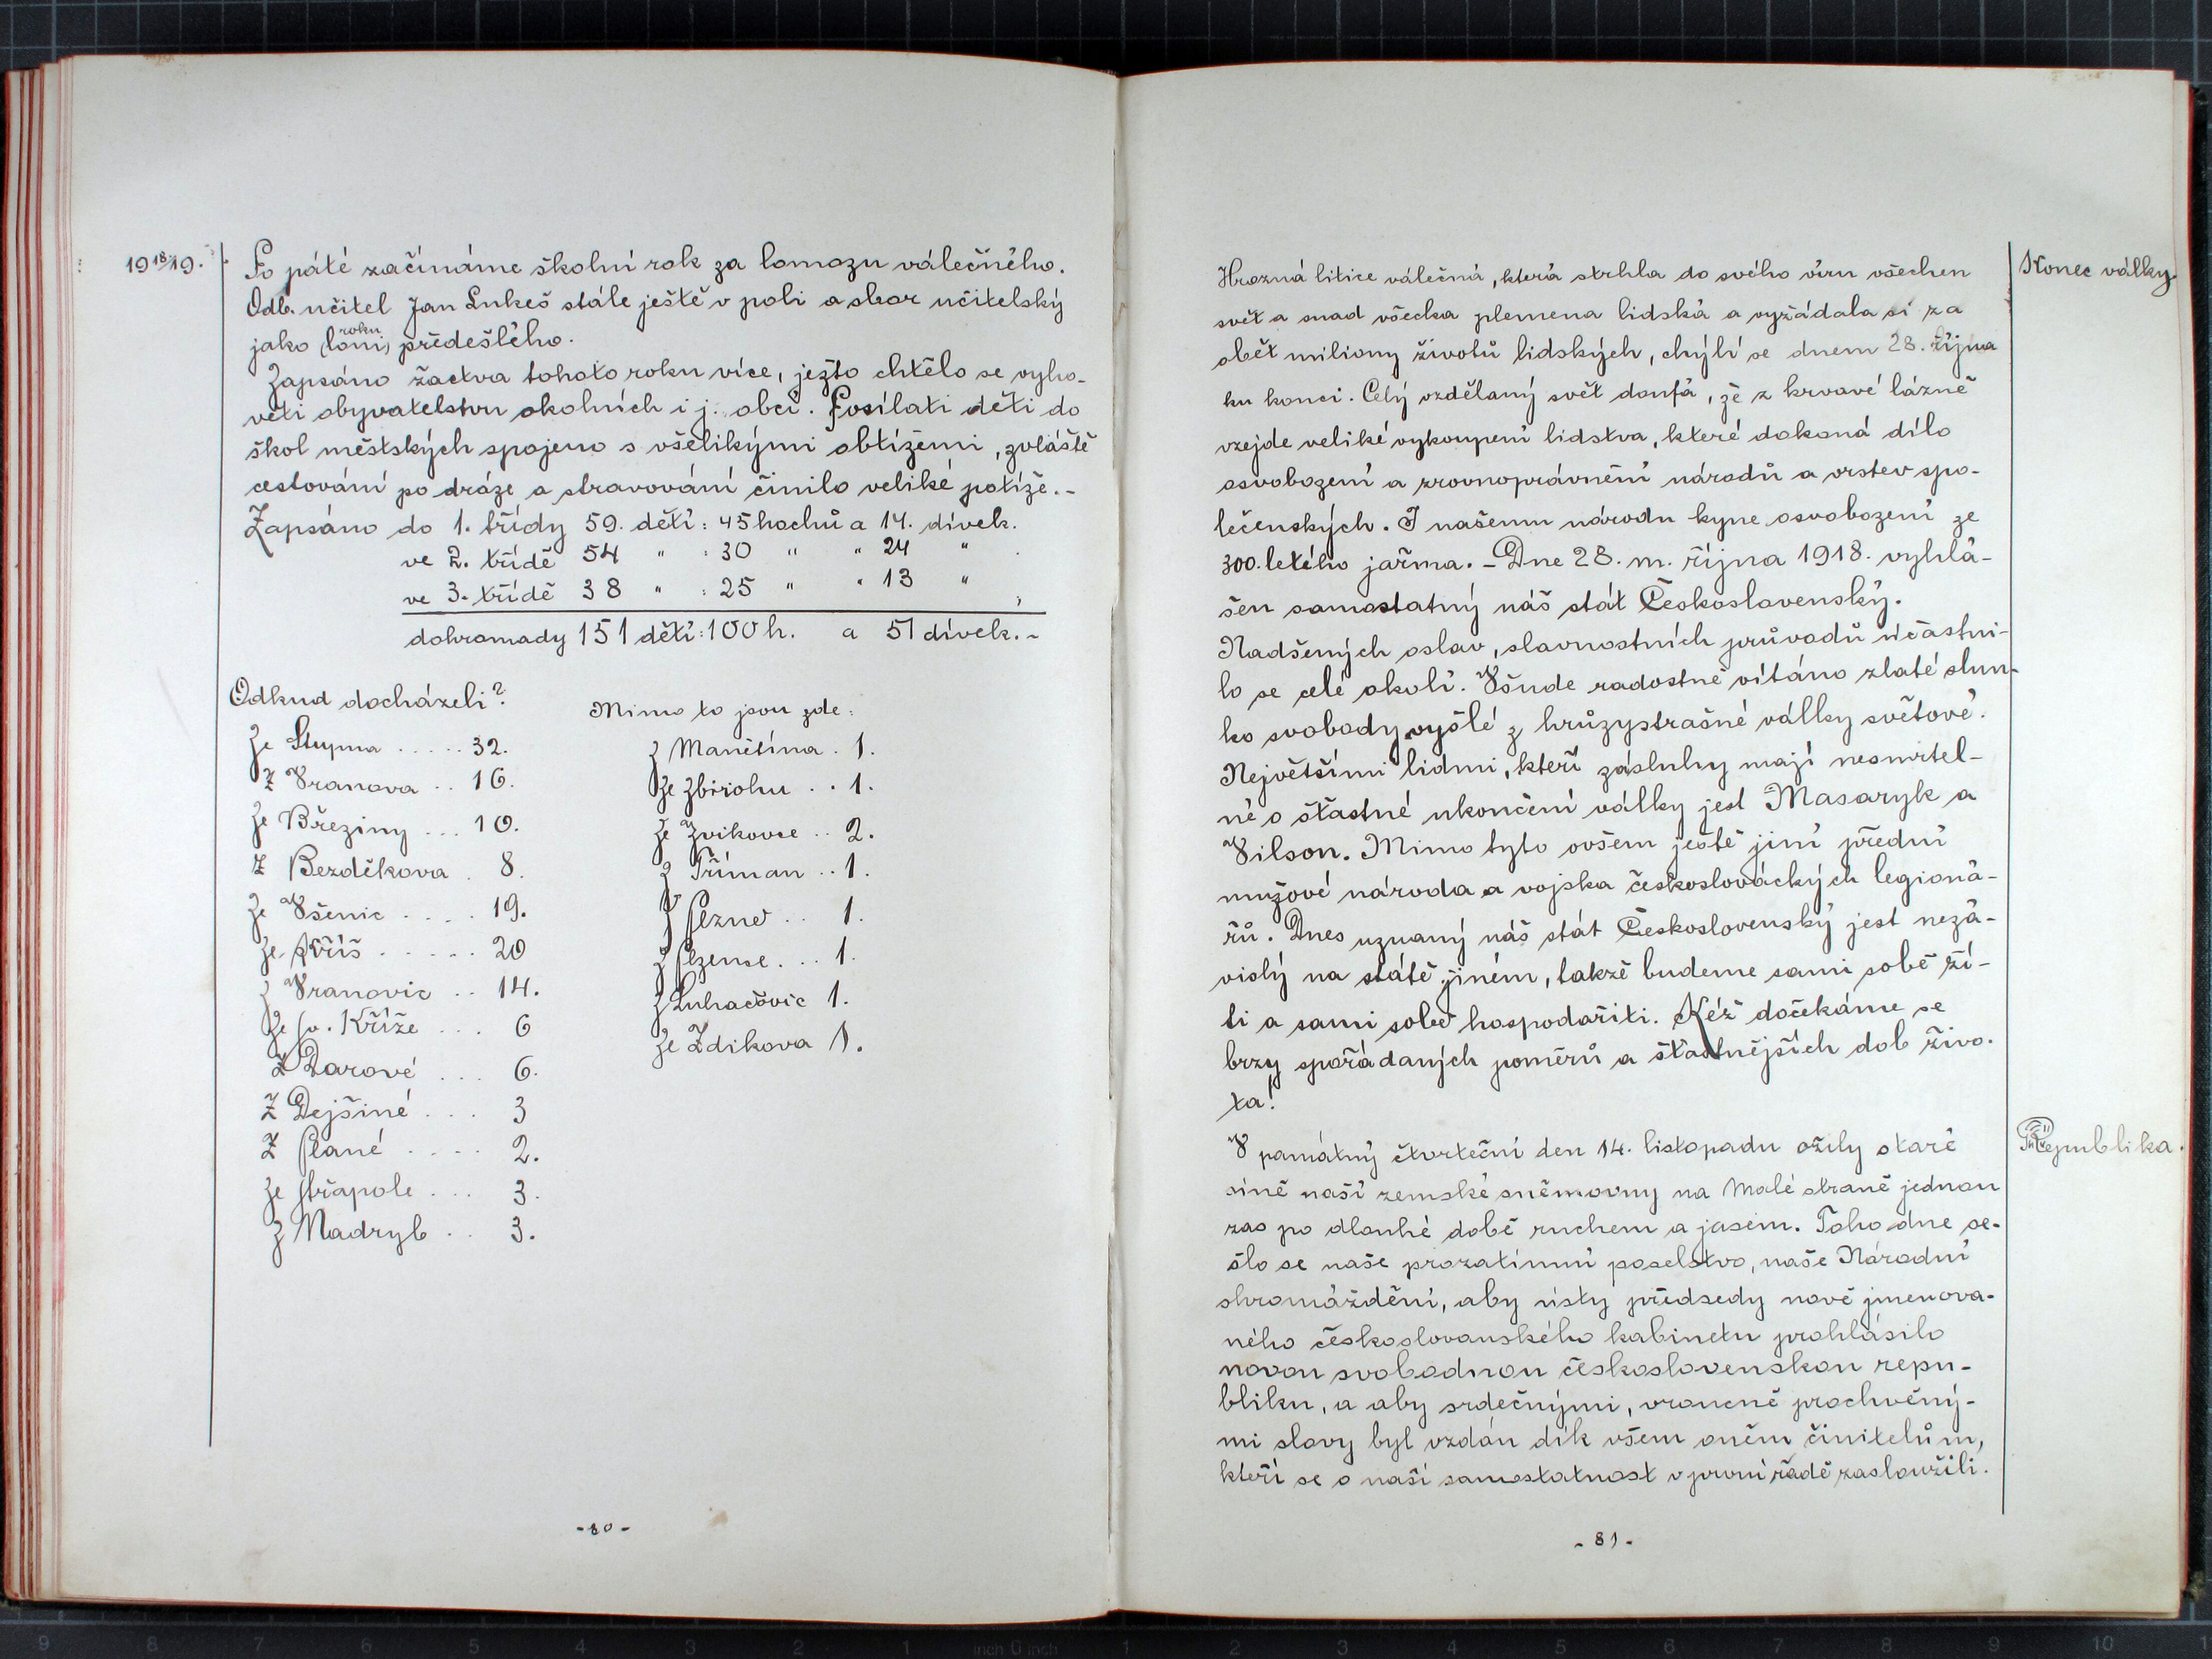 1918/19.
Po páté začínáme školní rok za lomozu válečného.
Odb. učitel Jan Lukeš stále ještě v poli a sbor učitelský
jako (loni) roku předešlého.
Zapsáno žactva tohoto roku více, ježto chtělo se vyho-
věti obyvatelstvu okolních i j. obcí. Posílati děti do
škol městských spojeno s všelikými obtížemi, zvláště
cestování po dráze a stravování činilo veliké potíže.-
Zapsáno do 1. třídy 59. dětí: 45 hochů a 14. dívek.
ve 2. třídě 54 " : 30 " " 24 "
ve 3. třídě 38 " : 25 " " 13 " ;
dohromady 151 dětí: 100 h. a 51 dívek.-
Odkud docházeli?
Ze Stupna ..... 32.
Z Vranova .. 16.
Ze Březiny ... 10.
Z Bezděkova . 8.
Ze Všenic .... 19.
Ze Kříš ..... 20
Z Vranovic .. 14.
Ze sv. Kříže ... 6
Z Darové ... 6.
Z Dejšiné ... 3
Z Plané .... 2.
Ze Střapole ... 3.
Z Nadryb .. 3.
Mimo to jsou zde:
Z Manětína . 1.
Ze Zbirohu .. 1.
Ze Zvíkovce .. 2.
Z Tříman .. 1.
Z .. 1.
Z ... 1.
Z Luhačovic 1.
Ze Zdikova 1.
- 80 -
Hrozná litice válečná, která strhla do svého víru všechen
svět a snad všecka plemena lidská a vyžádala si za
obět miliony životů lidských, chýlí se dnem 28. října
ku konci. Celý vzdělaný svět doufá, že z krvavé lázně
vzejde veliké vykoupení lidstva, které dokoná dílo
osvobození a zrovnoprávnění národů a vrstev spo-
lečenských. I našemu národu kyne osvobození ze
300. letého jařma. - Dne 28. m. října 1918. vyhlá-
šen samostatný náš stát Československý.
Nadšených oslav, slavnostních průvodů účastni-
lo se celé okolí. Všude radostně vítáno zlaté slun-
ko svobody vyšlé z hrůzystrašné války světové.
Největšími lidmi, kteří zásluhy mají nesmrtel-
né o šťastné ukončení války jest Masaryk a
Vilson. Mimo tyto ovšem ještě jiní přední
mužové národa a vojska českoslováckých legioná-
řů. Dnes uznaný náš stát Československý jest nezá-
vislý na státě jiném, takže budeme sami sobě ží-
ti a sami sobě hospodařiti. Kéž dočekáme se
brzy spořádaných poměrů a šťastnějších dob živo-
ta!
V památný čtvrteční den 14. listopadu ožily staré
síně naší zemské sněmovny na Malé straně jednou
zas po dlouhé době ruchem a jasem. Toho dne se-
šlo se naše prozatimní poselstvo, naše Národní
shromáždění, aby ústy předsedy nově jmenova-
ného československého kabinetu prohlásilo
novou svobodnou československou repu-
bliku, a aby srdečnými, vroucně prochvěný-
mi slovy byl vzdán dík všem oněm činitelům,
kteří se o naši samostatnost v první řadě zasloužili.
Konec války.
Republika.
- 81 -